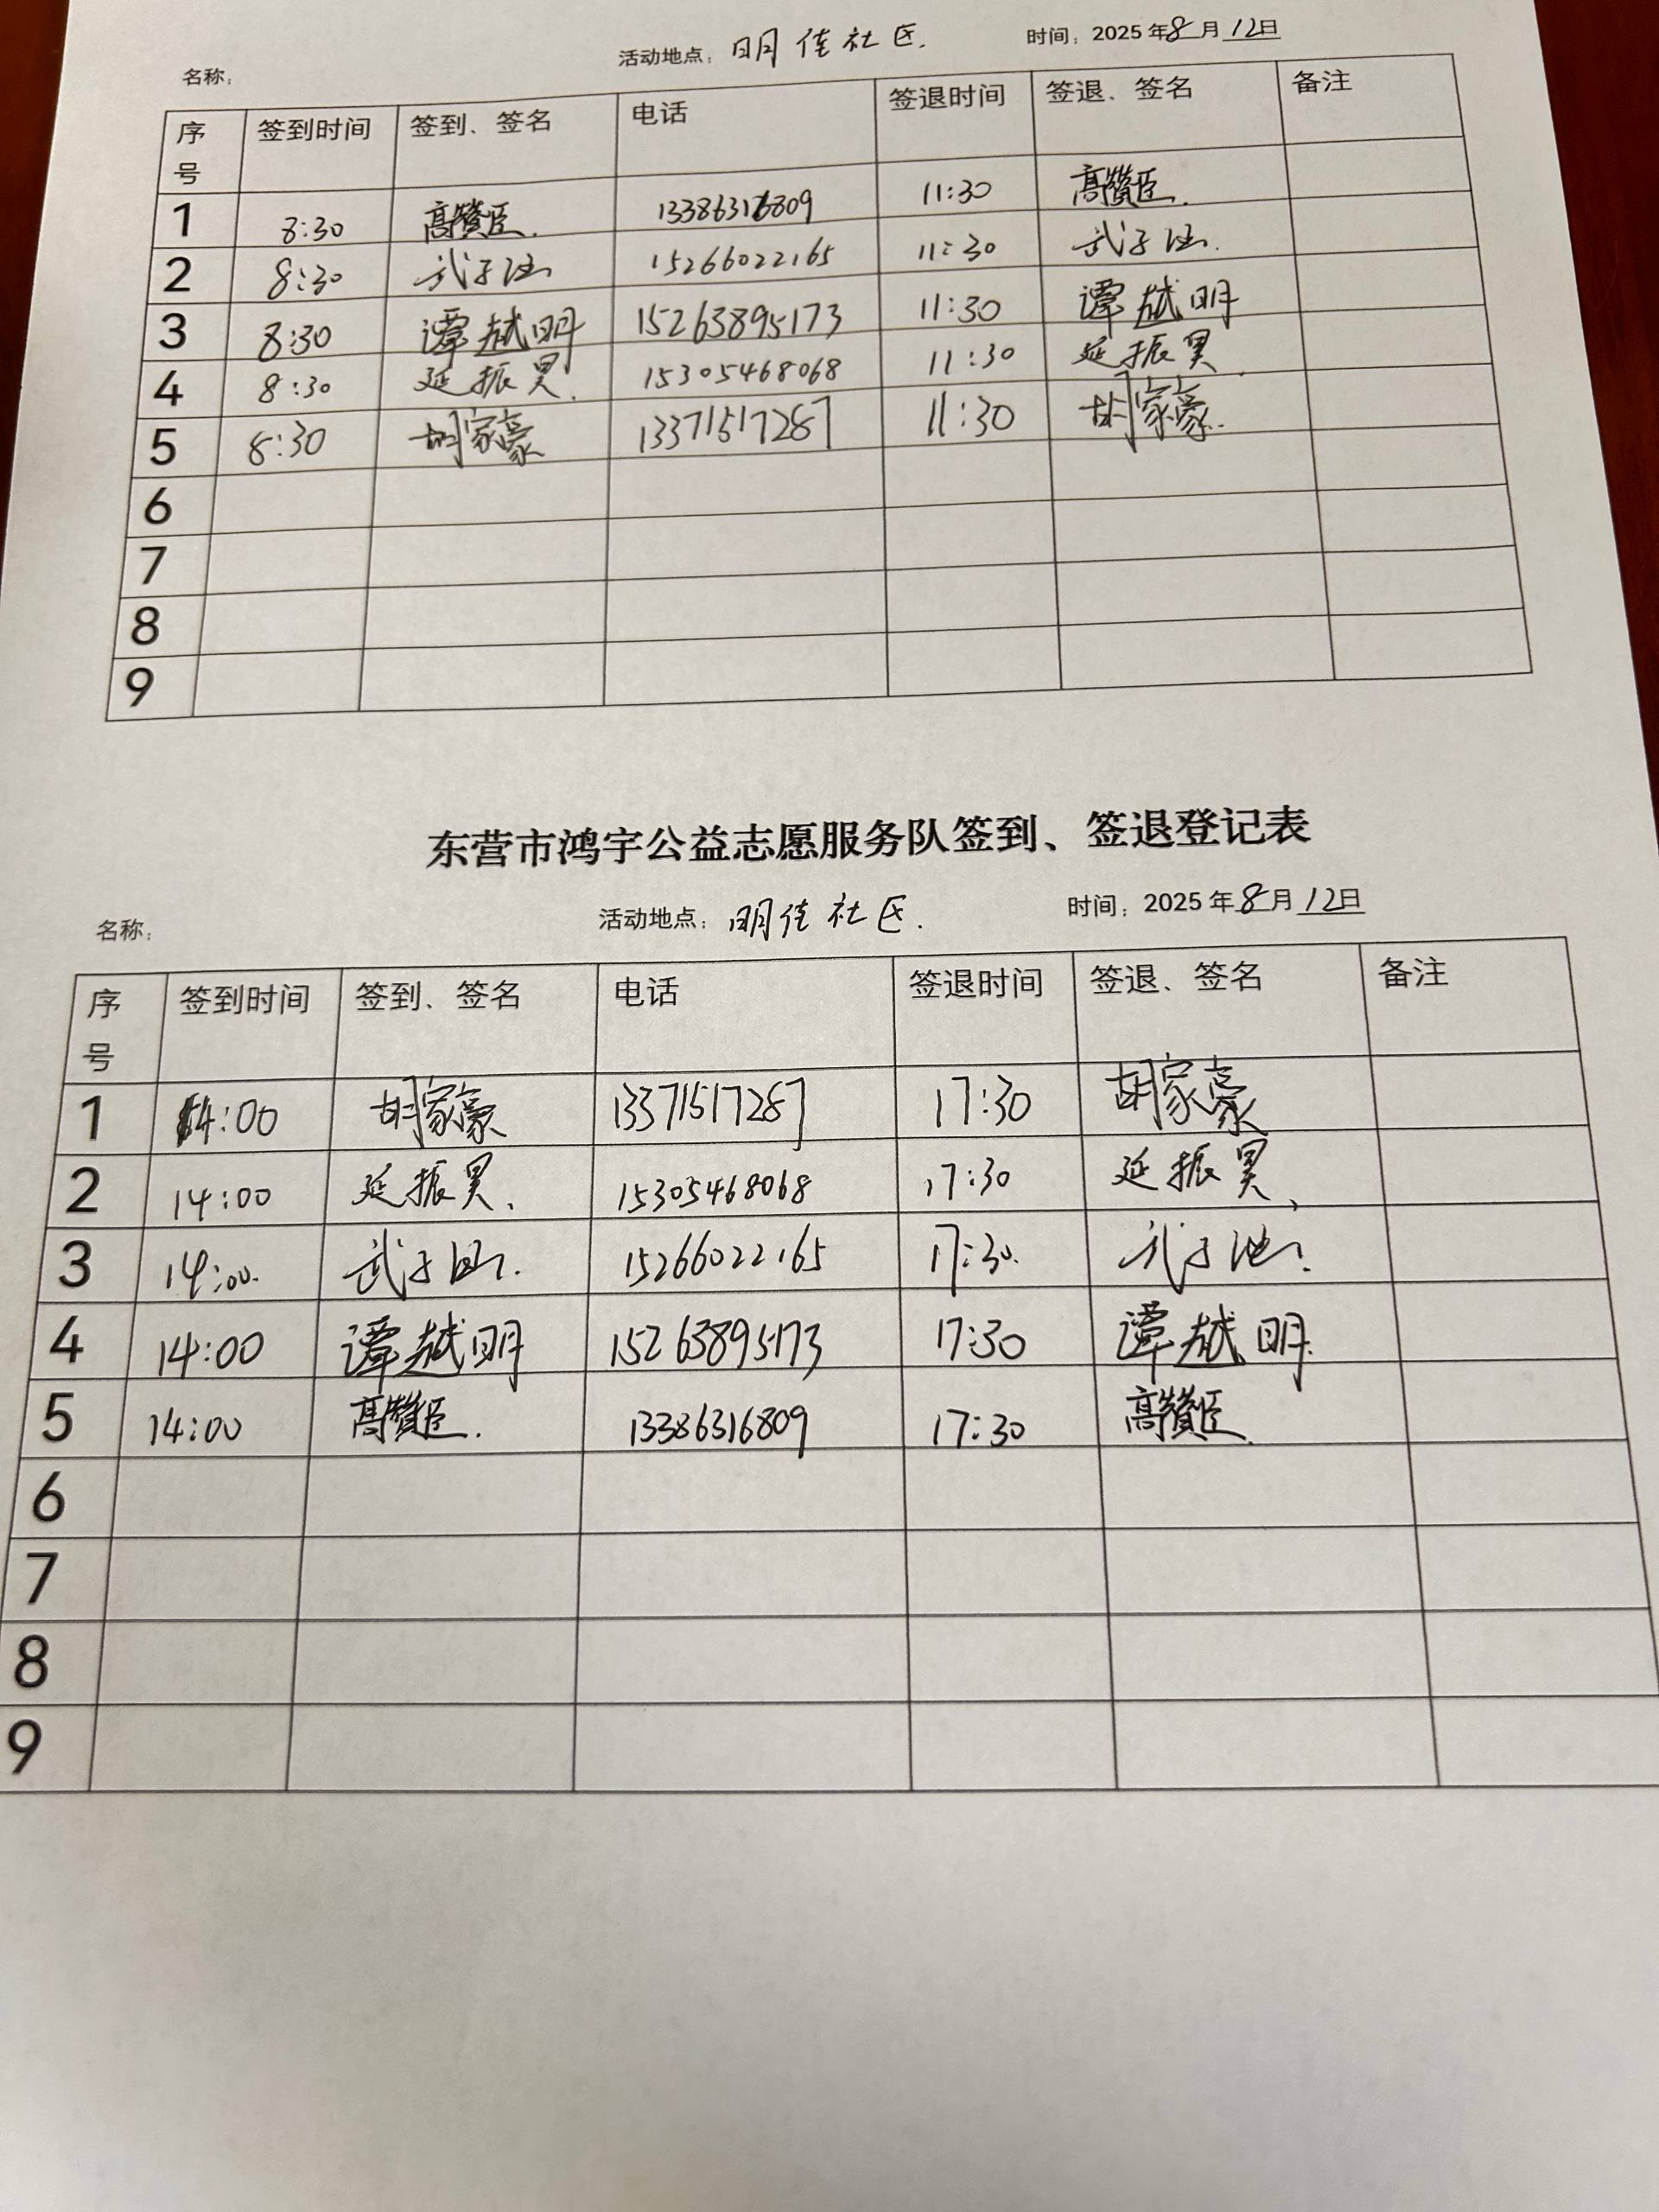 名称： 活动地点：明佳社区. 时间：2025年8月12日
序号 签到时间 签到、签名 电话 签退时间 签退、签名 备注
1 8:30 高赞臣. 13386316809 11:30 高赞臣.
2 8:30 武子涵 15266022165 11:30 武子涵.
3 8:30 谭越明 15263895173 11:30 谭越明
4 8:30 延振昊. 15305468068 11:30 延振昊.
5 8:30 胡家豪 13371517287 11:30 胡家豪.
6
7
8
9
东营市鸿宇公益志愿服务队签到、签退登记表
名称： 活动地点：明佳社区. 时间：2025年8月12日
序号 签到时间 签到、签名 电话 签退时间 签退、签名 备注
1 14:00 胡家豪 13371517287 17:30 胡家豪
2 14:00 延振昊. 15305468068 17:30 延振昊.
3 14:00. 武子涵. 15266022165 17:30. 武子涵.
4 14:00 谭越明 15263895173 17:30 谭越明.
5 14:00 高赞臣. 13386316809 17:30 高赞臣.
6
7
8
9